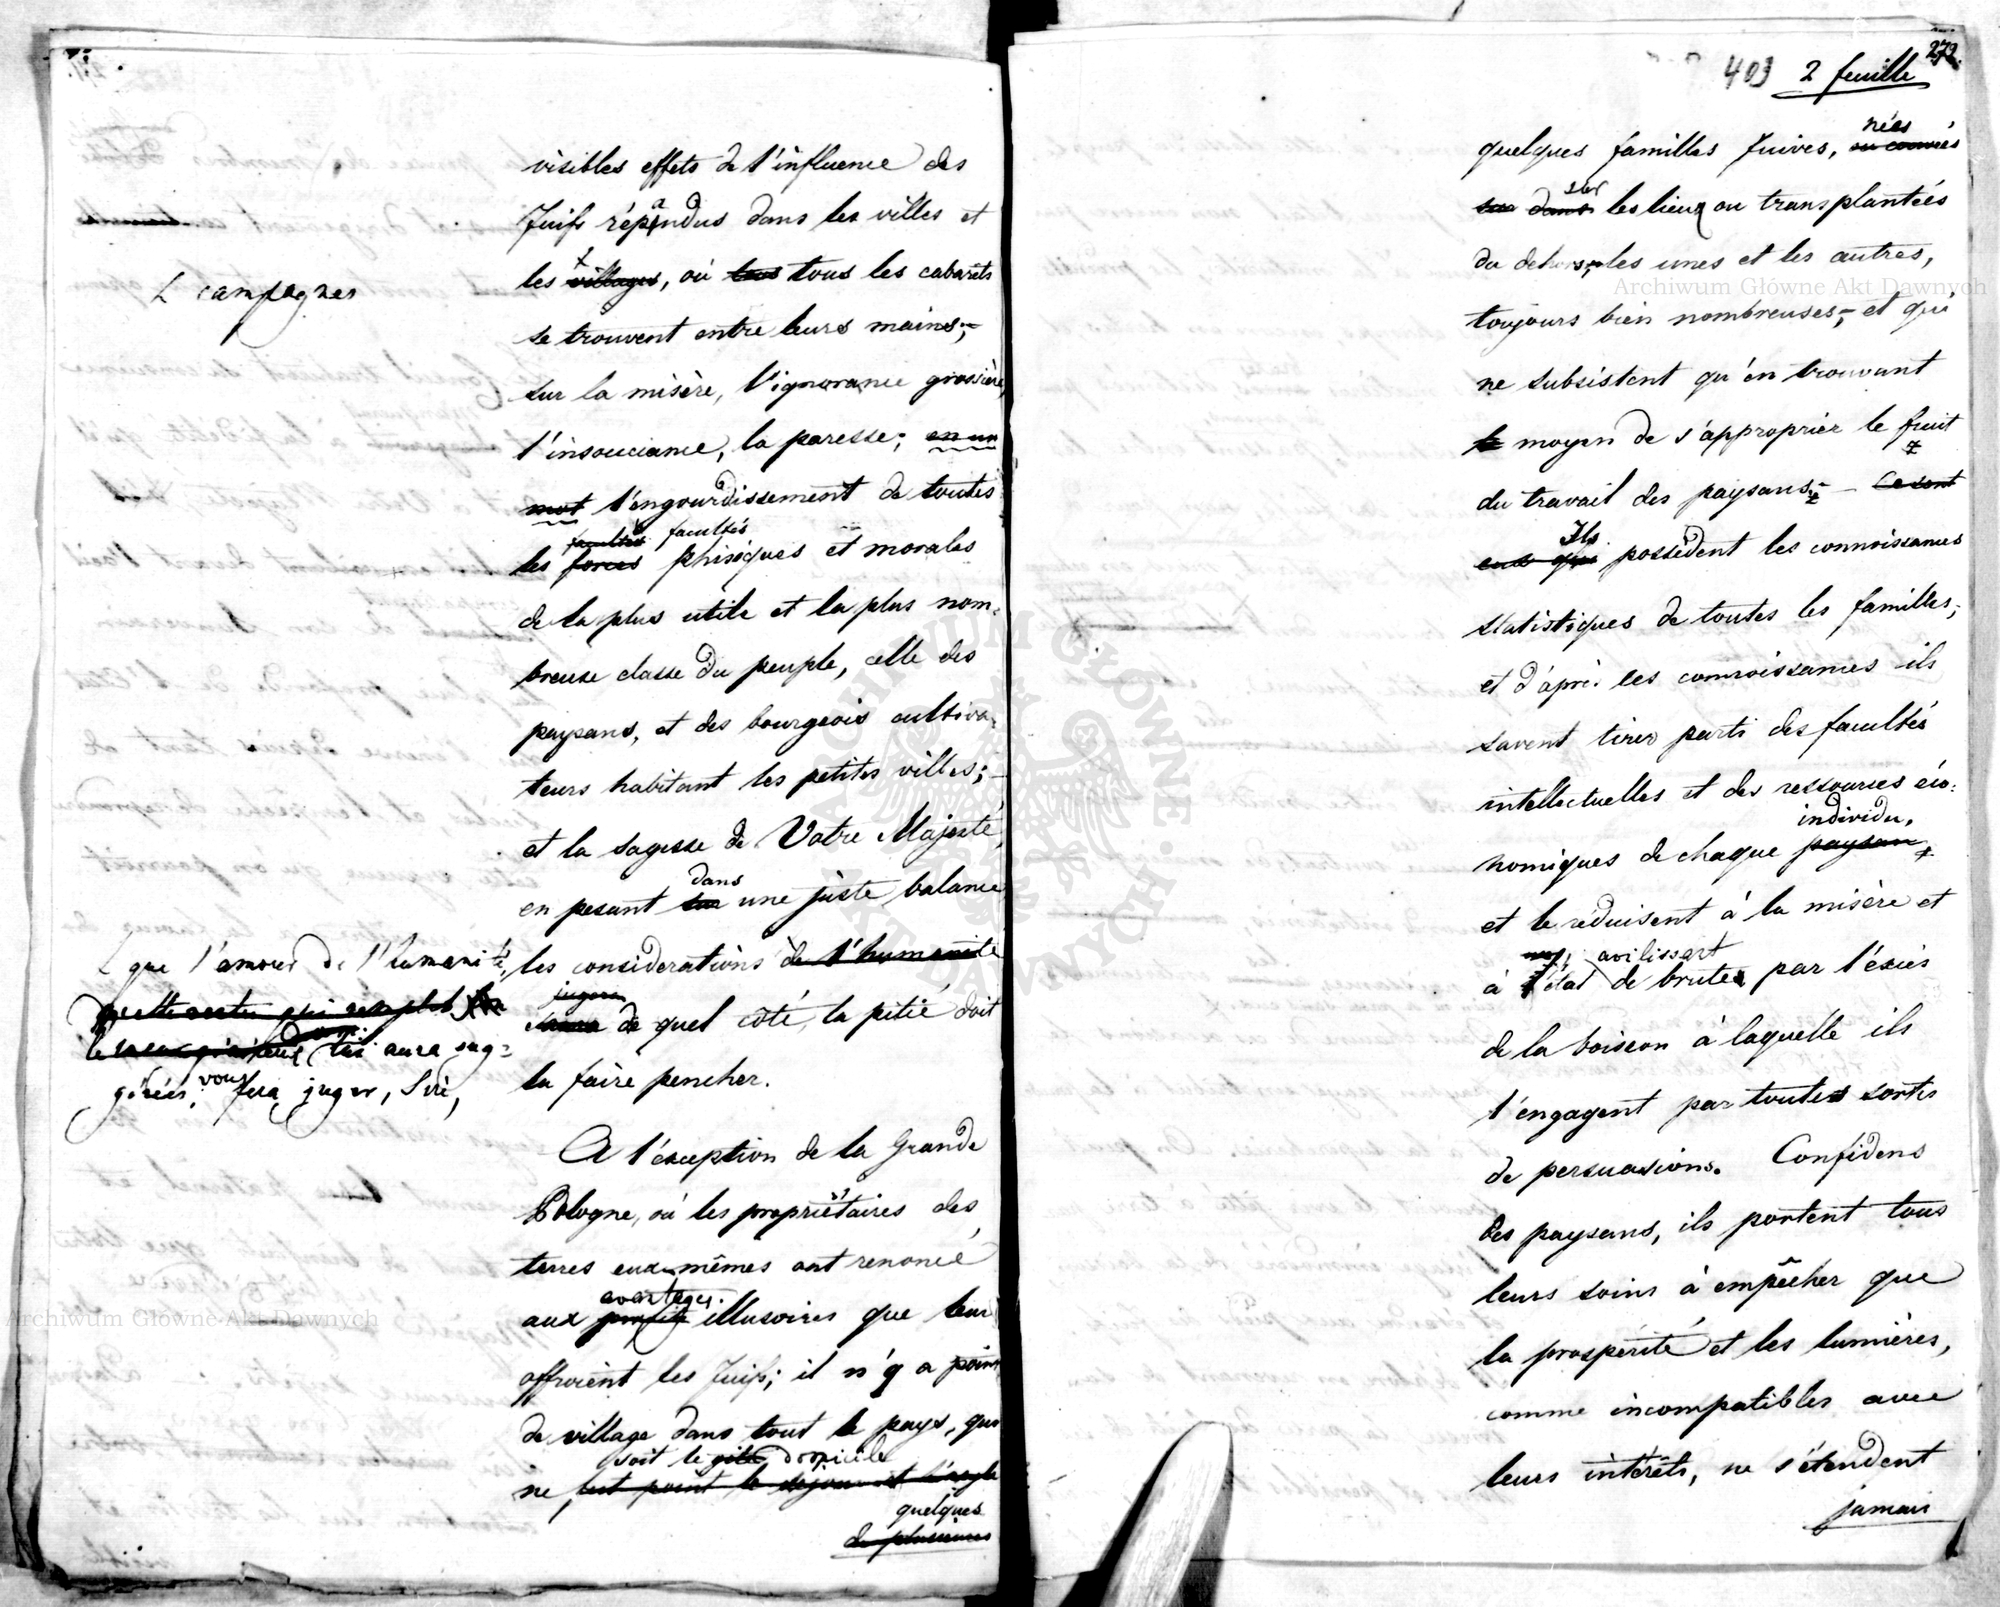 visibles effets de l'influence des
Juifs répandus dans les villes et
les villages, où tous les cabarets
L campagnes
se trouvent entre leurs mains;-
sur la misère, l'ignorance grossière,
l'insouciance, la paresse; en un
mot l'engourdissement de toutes
facultés facultés
les forces phisiques et morales
de la plus utile et la plus nom-
breuse classe du peuple, celle des
paysans, et des bourgeois cultiva-
teurs habitant les petites villes;-
et la sagesse de Votre Majesté,
dans
en pesant sur une juste balance
les considerations de l'humanité
L que l'amour de l'humanité,
lui aura sug-
gérées, vous fera juger, Sire,
jugera
de quel côté, la pitié doit
la faire pencher.
A l'éxception de la Grande
Pologne, où les propriétaires des
terres eux-mêmes ont renoncé
avantages
aux profits illusoires que leur
offroient les Juifs; il n'y a point
de village dans tout le pays, qui
soit le gite domicile
ne soit point le sejour et l'asyle
quelques
de plusieurs
403 2 feuille 272.
nées
quelques familles Juives,
sur
dans les lieux ou transplantées
du dehors, les unes et les autres,
toujours bien nombreuses;- et qui
ne subsistent qu'en trouvant
le moyen de s'approprier le fruit
du travail des paysans;- Ce sont
Ils
eux qui possèdent les connoissances
statistiques de toutes les familles;
et d'après les connoissances ils
savent tirer parti des facultés
intellectuelles et des ressourses éco-
individu,
nomiques de chaque paysan
et le réduisent à la misère et
avilissant
à l'état de brutes par l'éxcès
de la boisson à laquelle ils
l'engagent par toutes sortes
de persuasions. Confidens
des paysans, ils portent tous
leurs soins à empêcher que
la prospérité et les lumières,
comme incompatibles avec
leurs intérêts, ne s'étendent
jamais
Archiwum Główne Akt Dawnych
Archiwum Główne Akt Dawnych
ARCHIWUM GŁÓWNE AKT DAWNYCH